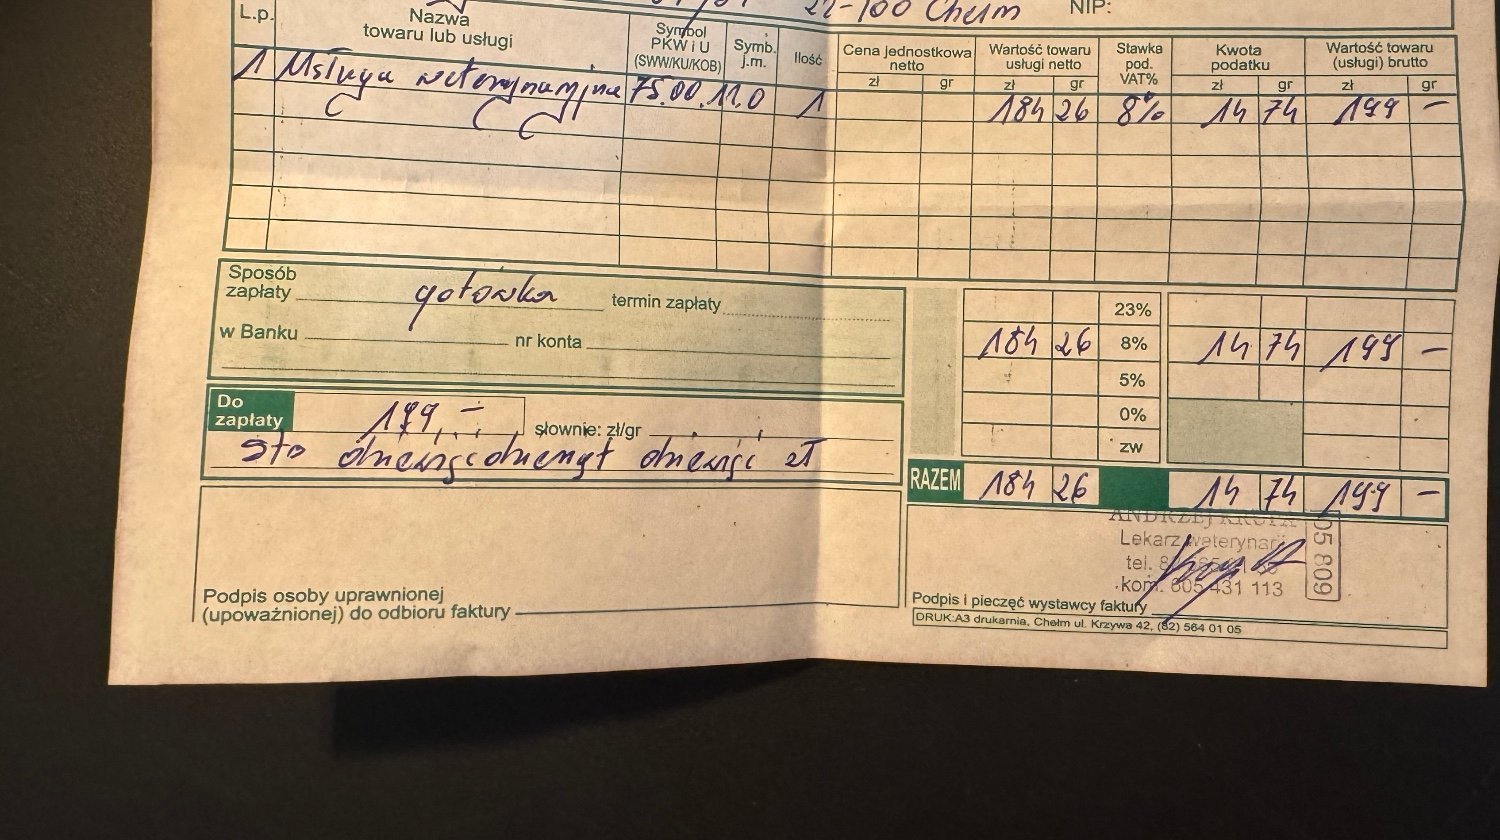 22-100 Chełm NIP:
L.p. Nazwa towaru lub usługi Symbol PKWiU (SWW/KU/KOB) Symb. j.m. Ilość Cena jednostkowa netto Wartość towaru usługi netto Stawka pod. VAT% Kwota podatku Wartość towaru (usługi) brutto
zł gr zł gr zł gr zł gr
1 Usługa weterynaryjna 75.00.11.0 1 184 26 8% 14 74 199 –
Sposób zapłaty gotówka termin zapłaty
w Banku nr konta
23%
184 26 8% 14 74 199 –
5%
0%
zw
Do zapłaty 199,– słownie: zł/gr
sto dziewięćdziesiąt dziewięć zł
RAZEM 184 26 14 74 199 –
ANDRZEJ
Lekarz weterynarii 05 809
tel.
kom. 605 431 113
Podpis osoby uprawnionej
(upoważnionej) do odbioru faktury
Podpis i pieczęć wystawcy faktury
DRUK:A3 drukarnia, Chełm ul. Krzywa 42, (82) 564 01 05